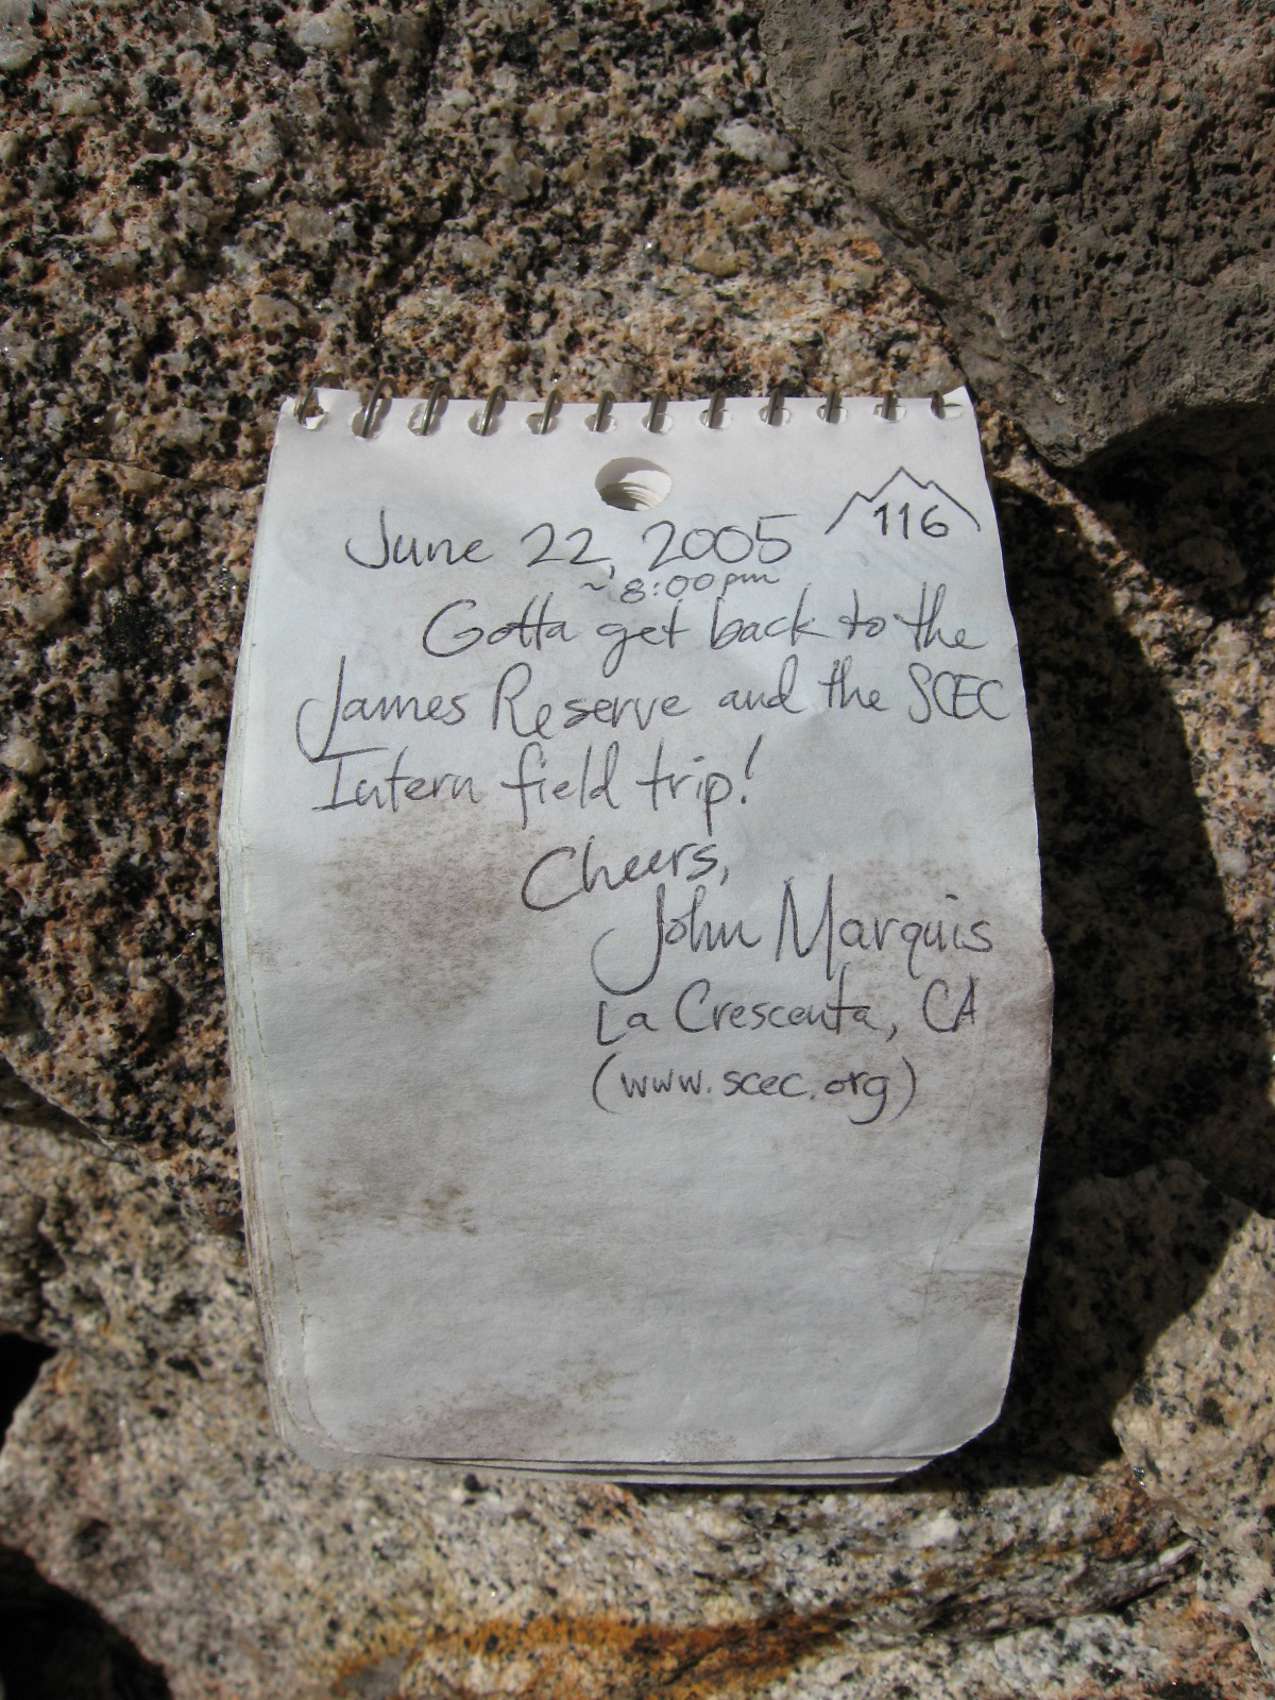 June 22, 2005 116
~8:00pm
Gotta get back to the
James Reserve and the SCEC
Intern field trip!
Cheers,
John Marquis
La Crescenta, CA
(www.scec.org)